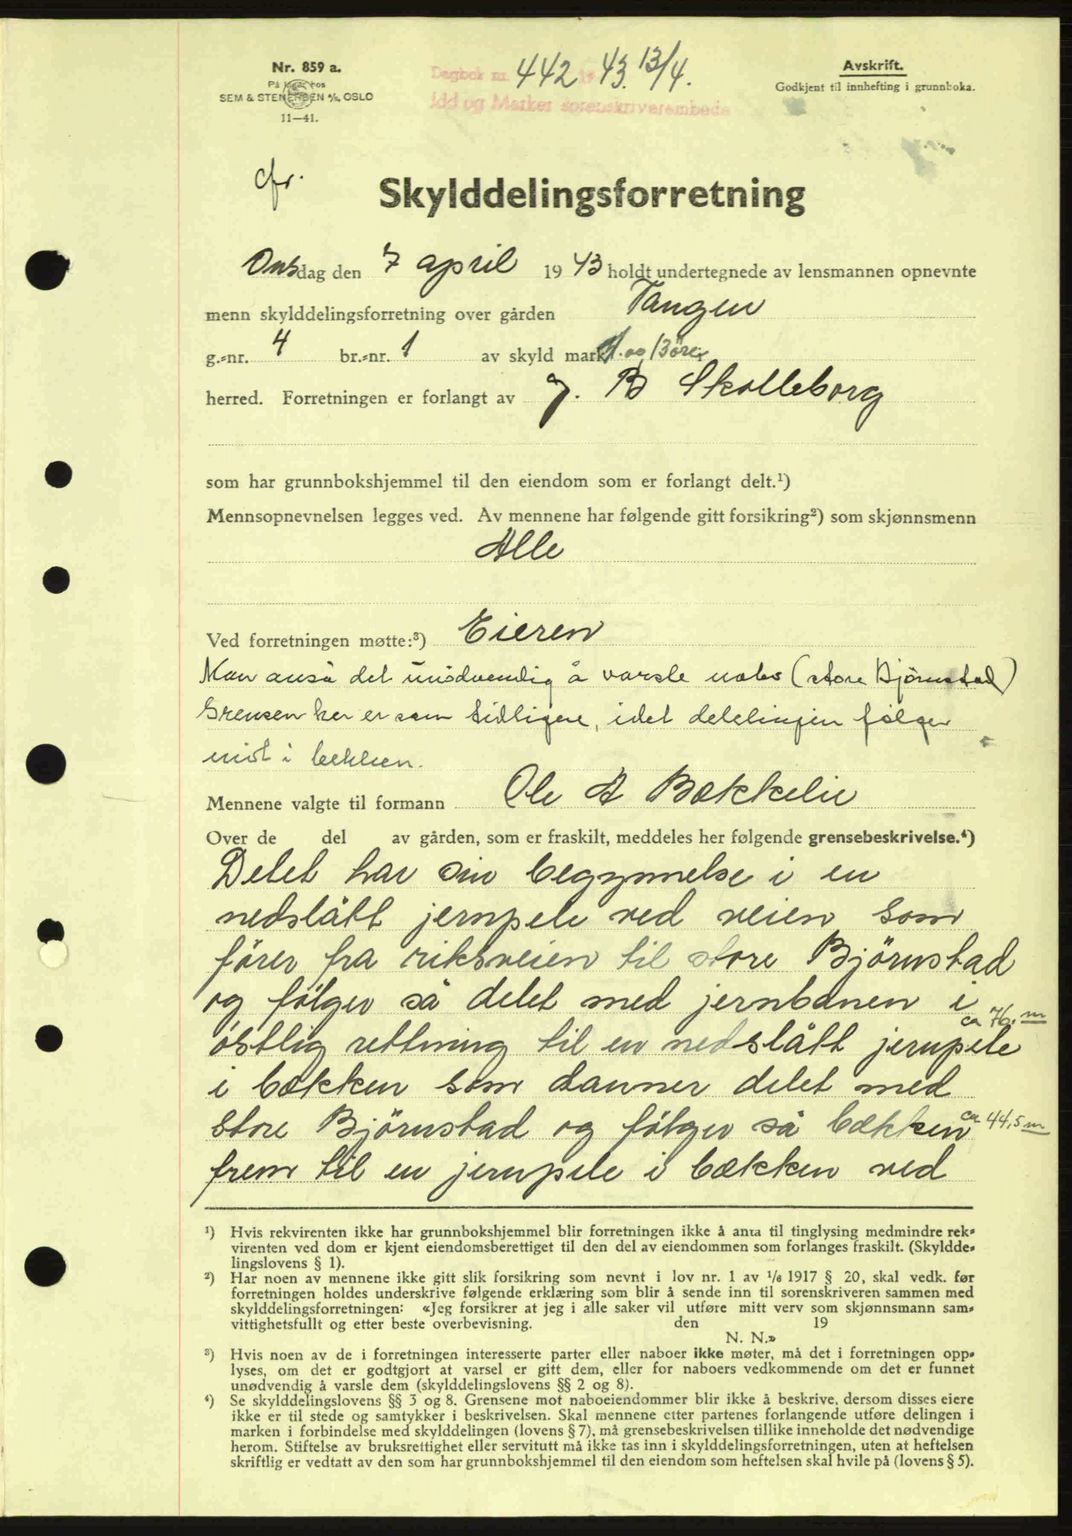 Nr. 859 a.
På lager hos
SEM & STENERSEN A/S, OSLO
11—41.
Dagbok nr. 442 19 43. 13/4.
Idd og Marker sorenskriverembede
Avskrift.
Godkjent til innhefting i grunnboka.
cfr.
Skylddelingsforretning
Onsdag den 7 april 1943 holdt undertegnede av lensmannen opnevnte
menn skylddelingsforretning over gården Tangen
g.-nr. 4 br.-nr. 1 av skyld mark
herred. Forretningen er forlangt av J. B Skolleborg
som har grunnbokshjemmel til den eiendom som er forlangt delt.¹)
Mennsopnevnelsen legges ved. Av mennene har følgende gitt forsikring²) som skjønnsmenn
Alle
Ved forretningen møtte:³) Eieren
Man anså det unödvendig å varsle nabo (store Björnstad)
Grensen her er som tidligere, idet delelinjen følger
midt i bekken.
Mennene valgte til formann Ole A Bækkelie
Over de del av gården, som er fraskilt, meddeles her følgende grensebeskrivelse.⁴)
Delet har sin begynnelse i en
nedslått jernpele ved veien som
fører fra riksveien til store Björnstad
og følger så delet med jernbanen i
ca 76. m
östlig rettning til en nedslått jernpele
i bækken som danner delet med
store Björnstad og følger så bækken ca 44,5 m
frem til en jernpele i bækken ved
¹) Hvis rekvirenten ikke har grunnbokshjemmel blir forretningen ikke å anta til tinglysing medmindre rek-
virenten ved dom er kjent eiendomsberettiget til den del av eiendommen som forlanges fraskilt. (Skyldde-
lingslovens § 1).
²) Har noen av mennene ikke gitt slik forsikring som nevnt i lov nr. 1 av 1/6 1917 § 20, skal vedk. før
forretningen holdes underskrive følgende erklæring som blir å sende inn til sorenskriveren sammen med
skylddelingsforretningen: «Jeg forsikrer at jeg i alle saker vil utføre mitt verv som skjønnsmann sam-
vittighetsfullt og etter beste overbevisning. den 19
N. N.»
³) Hvis noen av de i forretningen interesserte parter eller naboer ikke møter, må det i forretningen opp-
lyses, om det er godtgjort at varsel er gitt dem, eller for naboers vedkommende om det er funnet
unødvendig å varsle dem (skylddelingslovens §§ 2 og 8).
⁴) Se skylddelingslovens §§ 3 og 8. Grensene mot naboeiendommer blir ikke å beskrive, dersom disses eiere
ikke er til stede og samtykker i beskrivelsen. Skal mennene etter partenes forlangende utføre delingen i
marken i forbindelse med skylddelingen (lovens § 7), må grensebeskrivelsen tillike inneholde det nødvendige
herom. Stiftelse av bruksrettighet eller servitutt må ikke tas inn i skylddelingsforretningen, uten at heftelsen
skriftlig er vedtatt av den som har grunnbokshjemmel til den eiendom som heftelsen skal hvile på (lovens § 5).